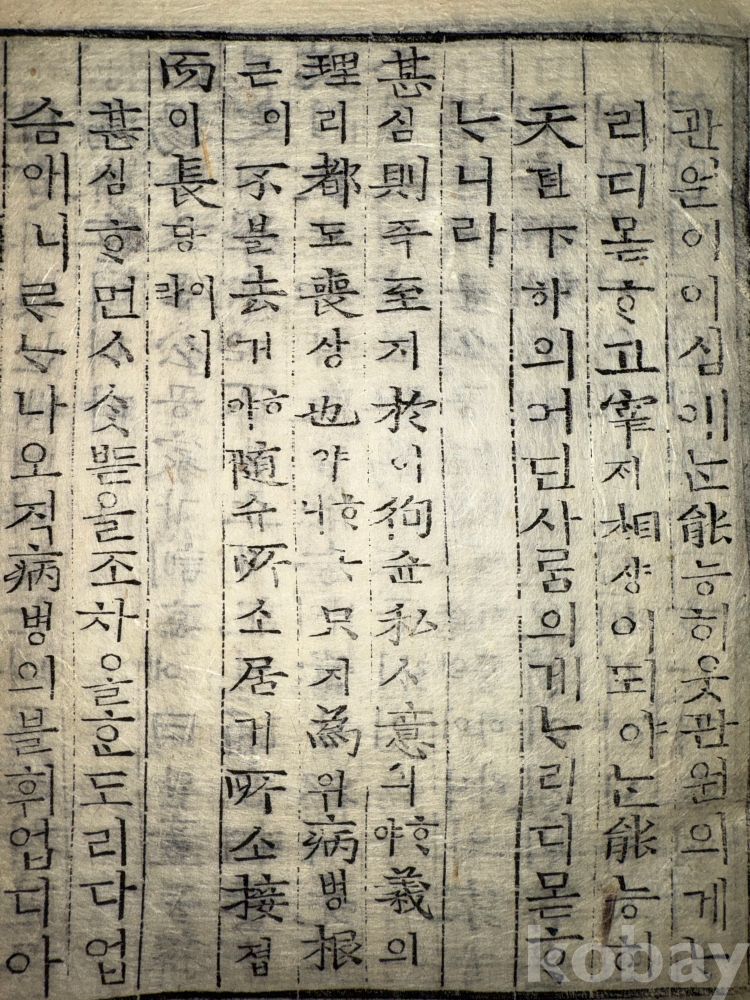 관원이이심애ᄂᆞᆫ能능히웃관원의게ᄂᆞ
리디몯ᄒᆞ고宰ᄌᆡ相샹이되야ᄂᆞᆫ能능히
天텬下하의어딘사ᄅᆞᆷ의게ᄂᆞ리디몯ᄒᆞ
ᄂᆞ니라
甚심則즉至지於어狥슌私ᄉᆞ意의ᄒᆞ야義의
理리都도喪상也야ᄒᆞᄂᆞ니只지為위病병根
근이不블去거ᄒᆞ야隨슈所소居거所소接접
而이長댱이라
甚심ᄒᆞ면ᄉᆞᄉᆞᆺᄠᅳᆮ을조차올ᄒᆞᆫ도리다업
슴애니르ᄂᆞ나오직病병의블휘업디아
kobay